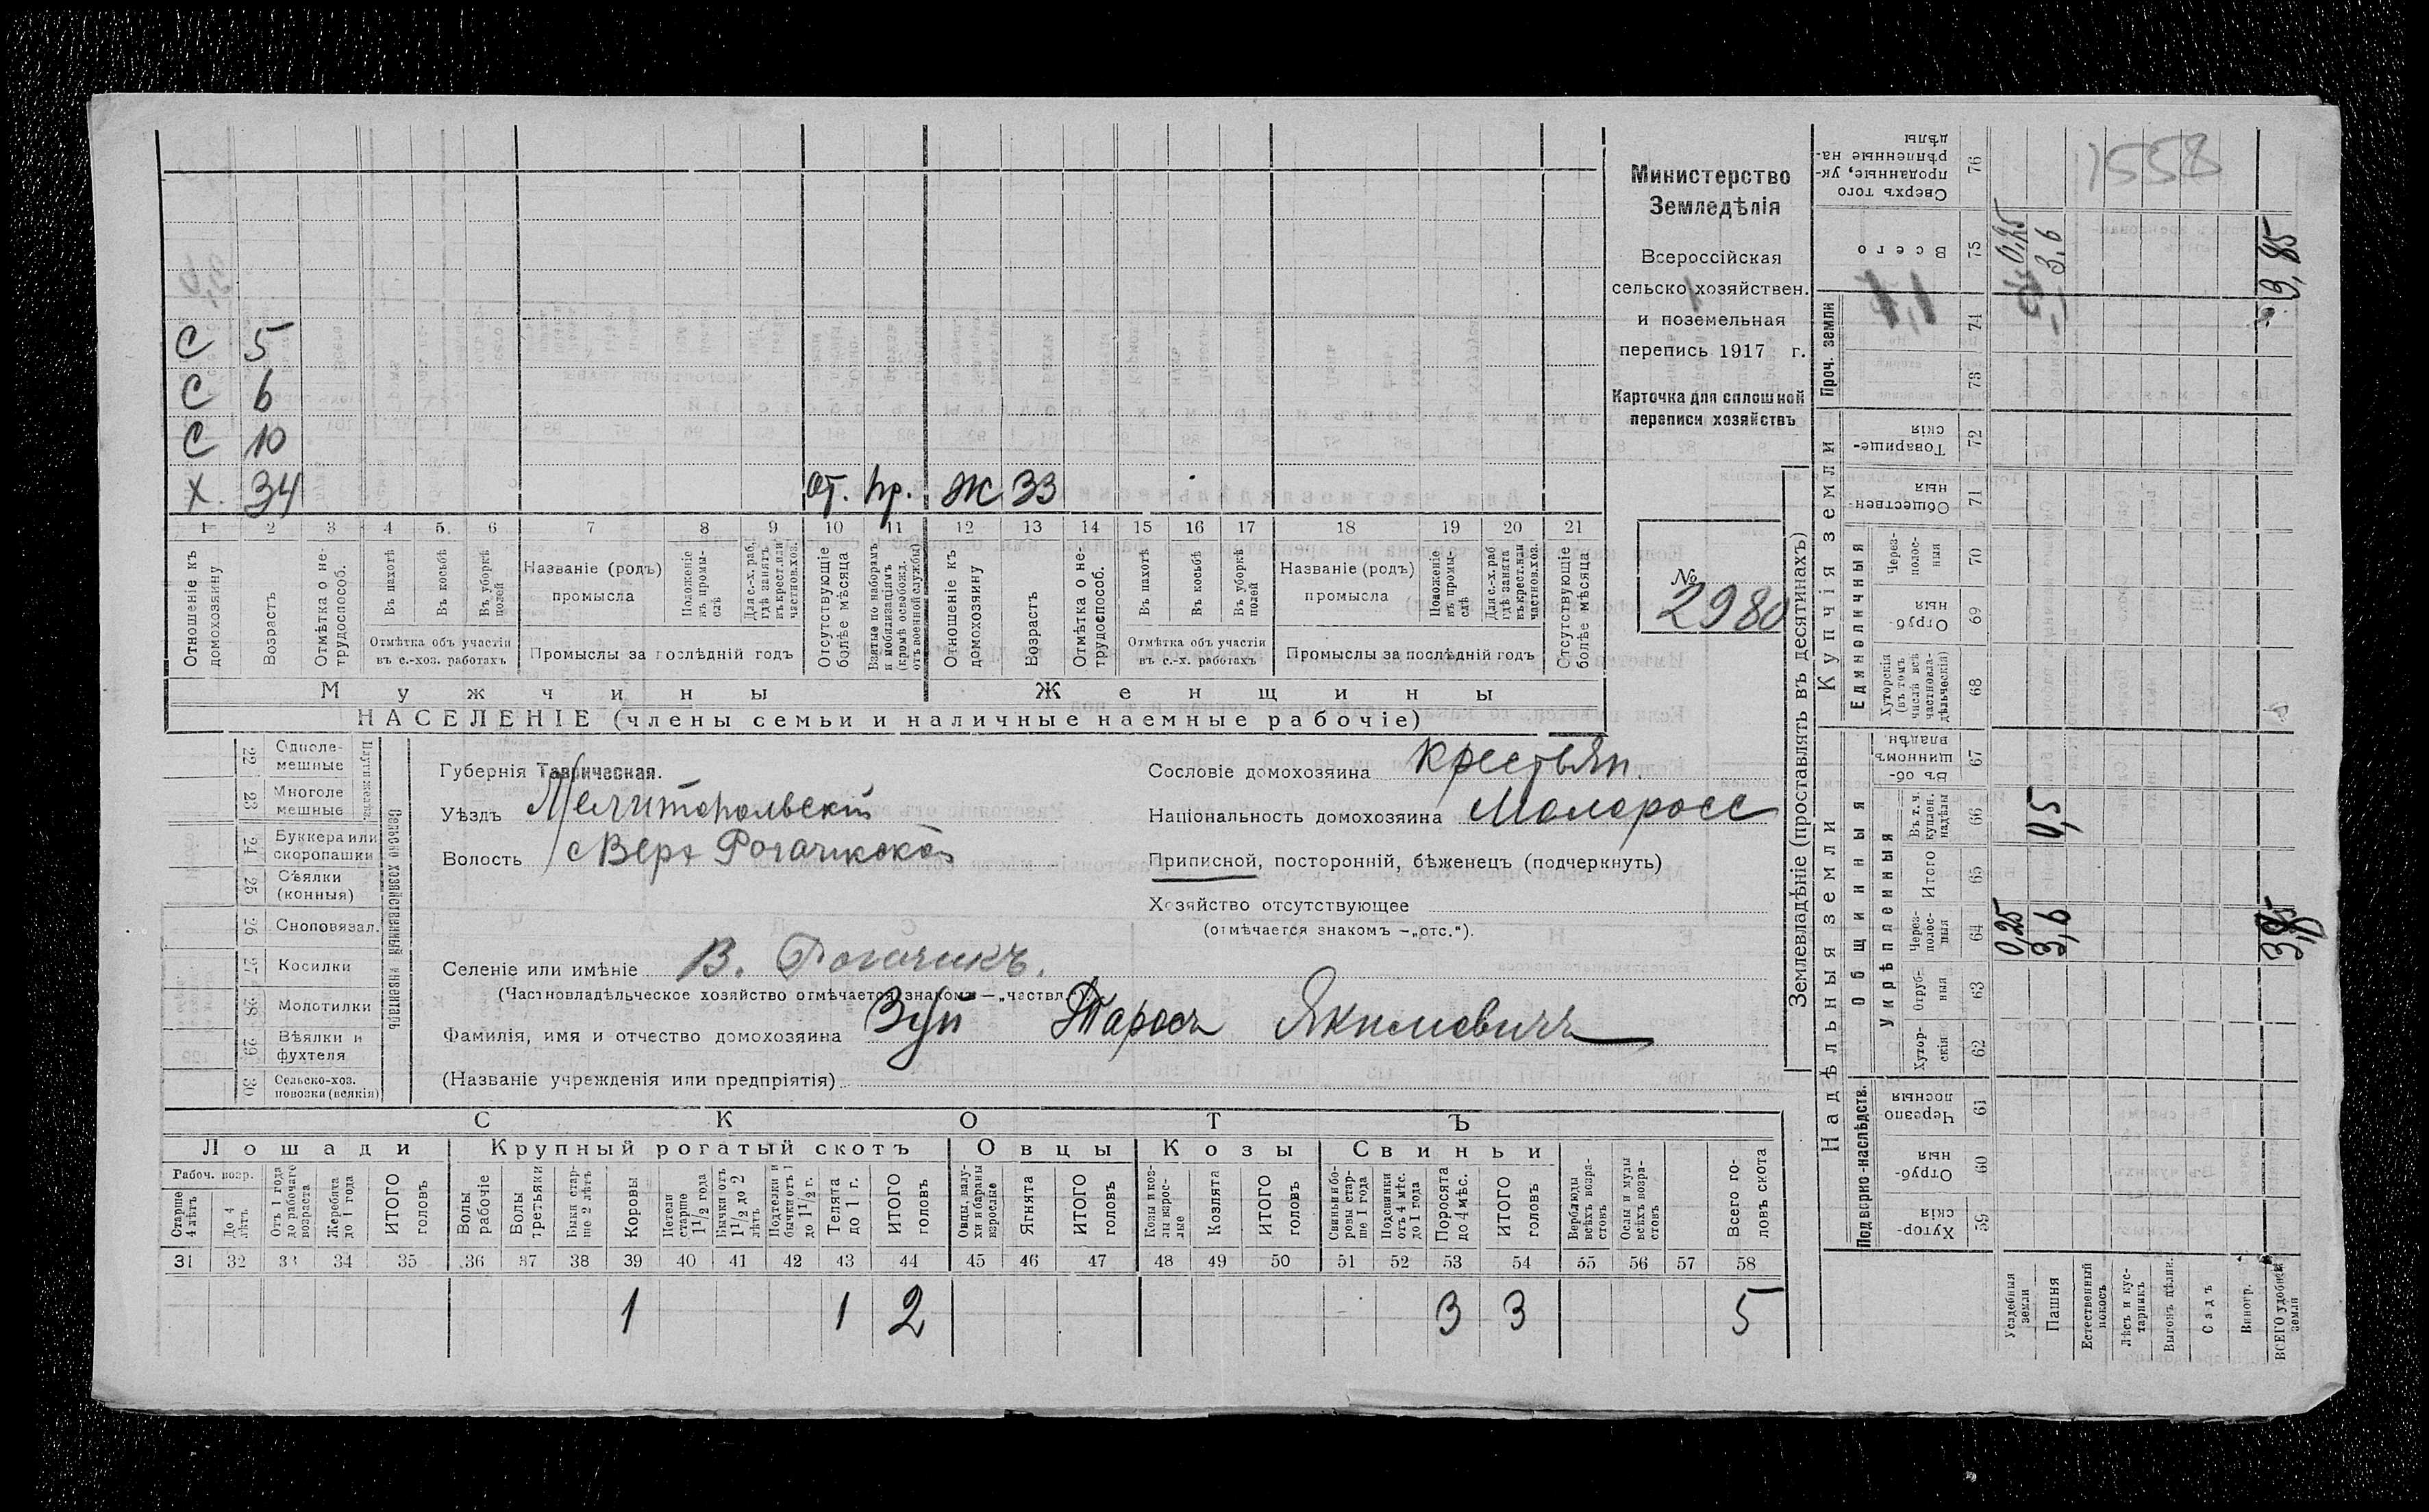 Министерство
Земледѣлія
Всероссійская
сельско хозяйствен.
и поземельная
перепись 1917 г.
Карточка для сплошной
переписи хозяйствъ
№
2980
1558
С 5
С 6
С 10
Х. 34 от. пр. Ж 33
1 2 3 4 5. 6 7 8 9 10 11 12 13 14 15 16 17 18 19 20 21
Отношеніе къ домохозяину
Возрастъ
Отмѣтка о не-трудоспособ.
Въ пахотѣ
Въ косьбѣ
Въ уборкѣ полей
Отмѣтка объ участіи въ с.-хоз. работахъ
Названіе (родъ) промысла
Положеніе въ промы-слѣ
Для с.-х. раб. гдѣ занятъ въ крест. или частнов. хоз.
Промыслы за послѣдній годъ
Отсутствующіе болѣе мѣсяца
Взятые по наборамъ и мобилизаціямъ (кромѣ освобожд. отъ военной службы)
Отношеніе къ домохозяину
Возрастъ
Отмѣтка о не-трудоспособ.
Въ пахотѣ
Въ косьбѣ
Въ уборкѣ полей
Отмѣтка объ участіи въ с.-х. работахъ
Названіе (родъ) промысла
Положеніе въ промы-слѣ
Для с.-х. раб гдѣ занята въ крест. или частнов. хоз.
Промыслы за послѣдній годъ
Отсутствующіе болѣе мѣсяца
Мужчины Женщины
НАСЕЛЕНІЕ (члены семьи и наличные наемные рабочіе)
22 Одноле-мешные
23 Многоле мешные
24 Буккера или скоропашки
25 Сѣялки (конныя)
26 Сноповязал.
27 Косилки
28 Молотилки
29 Вѣялки и фухтеля
30 Сельско-хоз. повозки (всякія)
Сельско хозяйственный инвентарь
Губернія Таврическая.
Уѣздъ Мелитопольскій
Волость Верх Рогачикской
Селеніе или имѣніе В. Рогачикъ.
(Частновладѣльческое хозяйство отмѣчается знакомъ —„частвл.
Фамилія, имя и отчество домохозяина Зуй Тарасъ Якимовичъ
(Названіе учрежденія или предпріятія)
Сословіе домохозяина крестьян.
Національность домохозяина Малоросс
Приписной, посторонній, бѣженецъ (подчеркнуть)
Хозяйство отсутствующее
(отмѣчается знакомъ —„отс.“).
СКОТЪ
Лошади Крупный рогатый скотъ Овцы Козы Свиньи
Рабоч. возр.
Старше 4 лѣтъ
До 4 лѣтъ
Отъ 1 года до рабочаго возраста
Жеребята до 1 года
ИТОГО головъ
Волы рабочіе
Волы третьяки
Быки стар-ше 2 лѣтъ
Коровы
Нетели старше 1 1/2 года
Бычки отъ 1 1/2 до 2 лѣтъ
Подтелки и бычки отъ 1 до 1 1/2 г.
Телята до 1 г.
ИТОГО головъ
Овцы, валу-хи и бараны взрослые
Ягнята
ИТОГО головъ
Козы и коз-лы взрос-лые
Козлята
ИТОГО головъ
Свиньи и бо-ровы стар-ше 1 года
Подсвинки отъ 4 мѣс. до 1 года
Поросята до 4 мѣс.
ИТОГО головъ
Верблюды всѣхъ возра-стовъ
Ослы и мулы всѣхъ возра-стовъ
Всего го-ловъ скота
31 32 33 34 35 36 37 38 39 40 41 42 43 44 45 46 47 48 49 50 51 52 53 54 55 56 57 58
1 1 2 3 3 5
Землевладѣніе (проставлять въ десятинахъ)
Надѣльныя земли Купчія земли Проч. земли
Подворно-наслѣдств. Общинныя Единоличныя
Укрѣпленныя
Хутор-скія 59
Отруб-ныя 60
Черезпо лосныя 61
Хутор-скія 62
Отруб-ныя 63
Черес-полос-ныя 64
Итого 65
Въ т. ч. куплен. надѣлы 66
Въ об-щинномъ владѣн. 67
Хуторскія (въ томъ числѣ всѣ частновла-дѣльческія) 68
Отруб-ныя 69
Через-полос-ныя 70
Обществен-ныя 71
Товарище-скія 72
73
74
Всего 75
Сверхъ того проданные, ук-рѣпленные на-дѣлы 76
Усадебныя земли 0,25 0,25
Пашня 3,6 0,5 3,6
Естественный покосъ
Лѣсъ и кус-тарникъ
Выгонъ цѣлин.
Садъ
Виногр.
ВСЕГО удобной земли 3,85 3,85